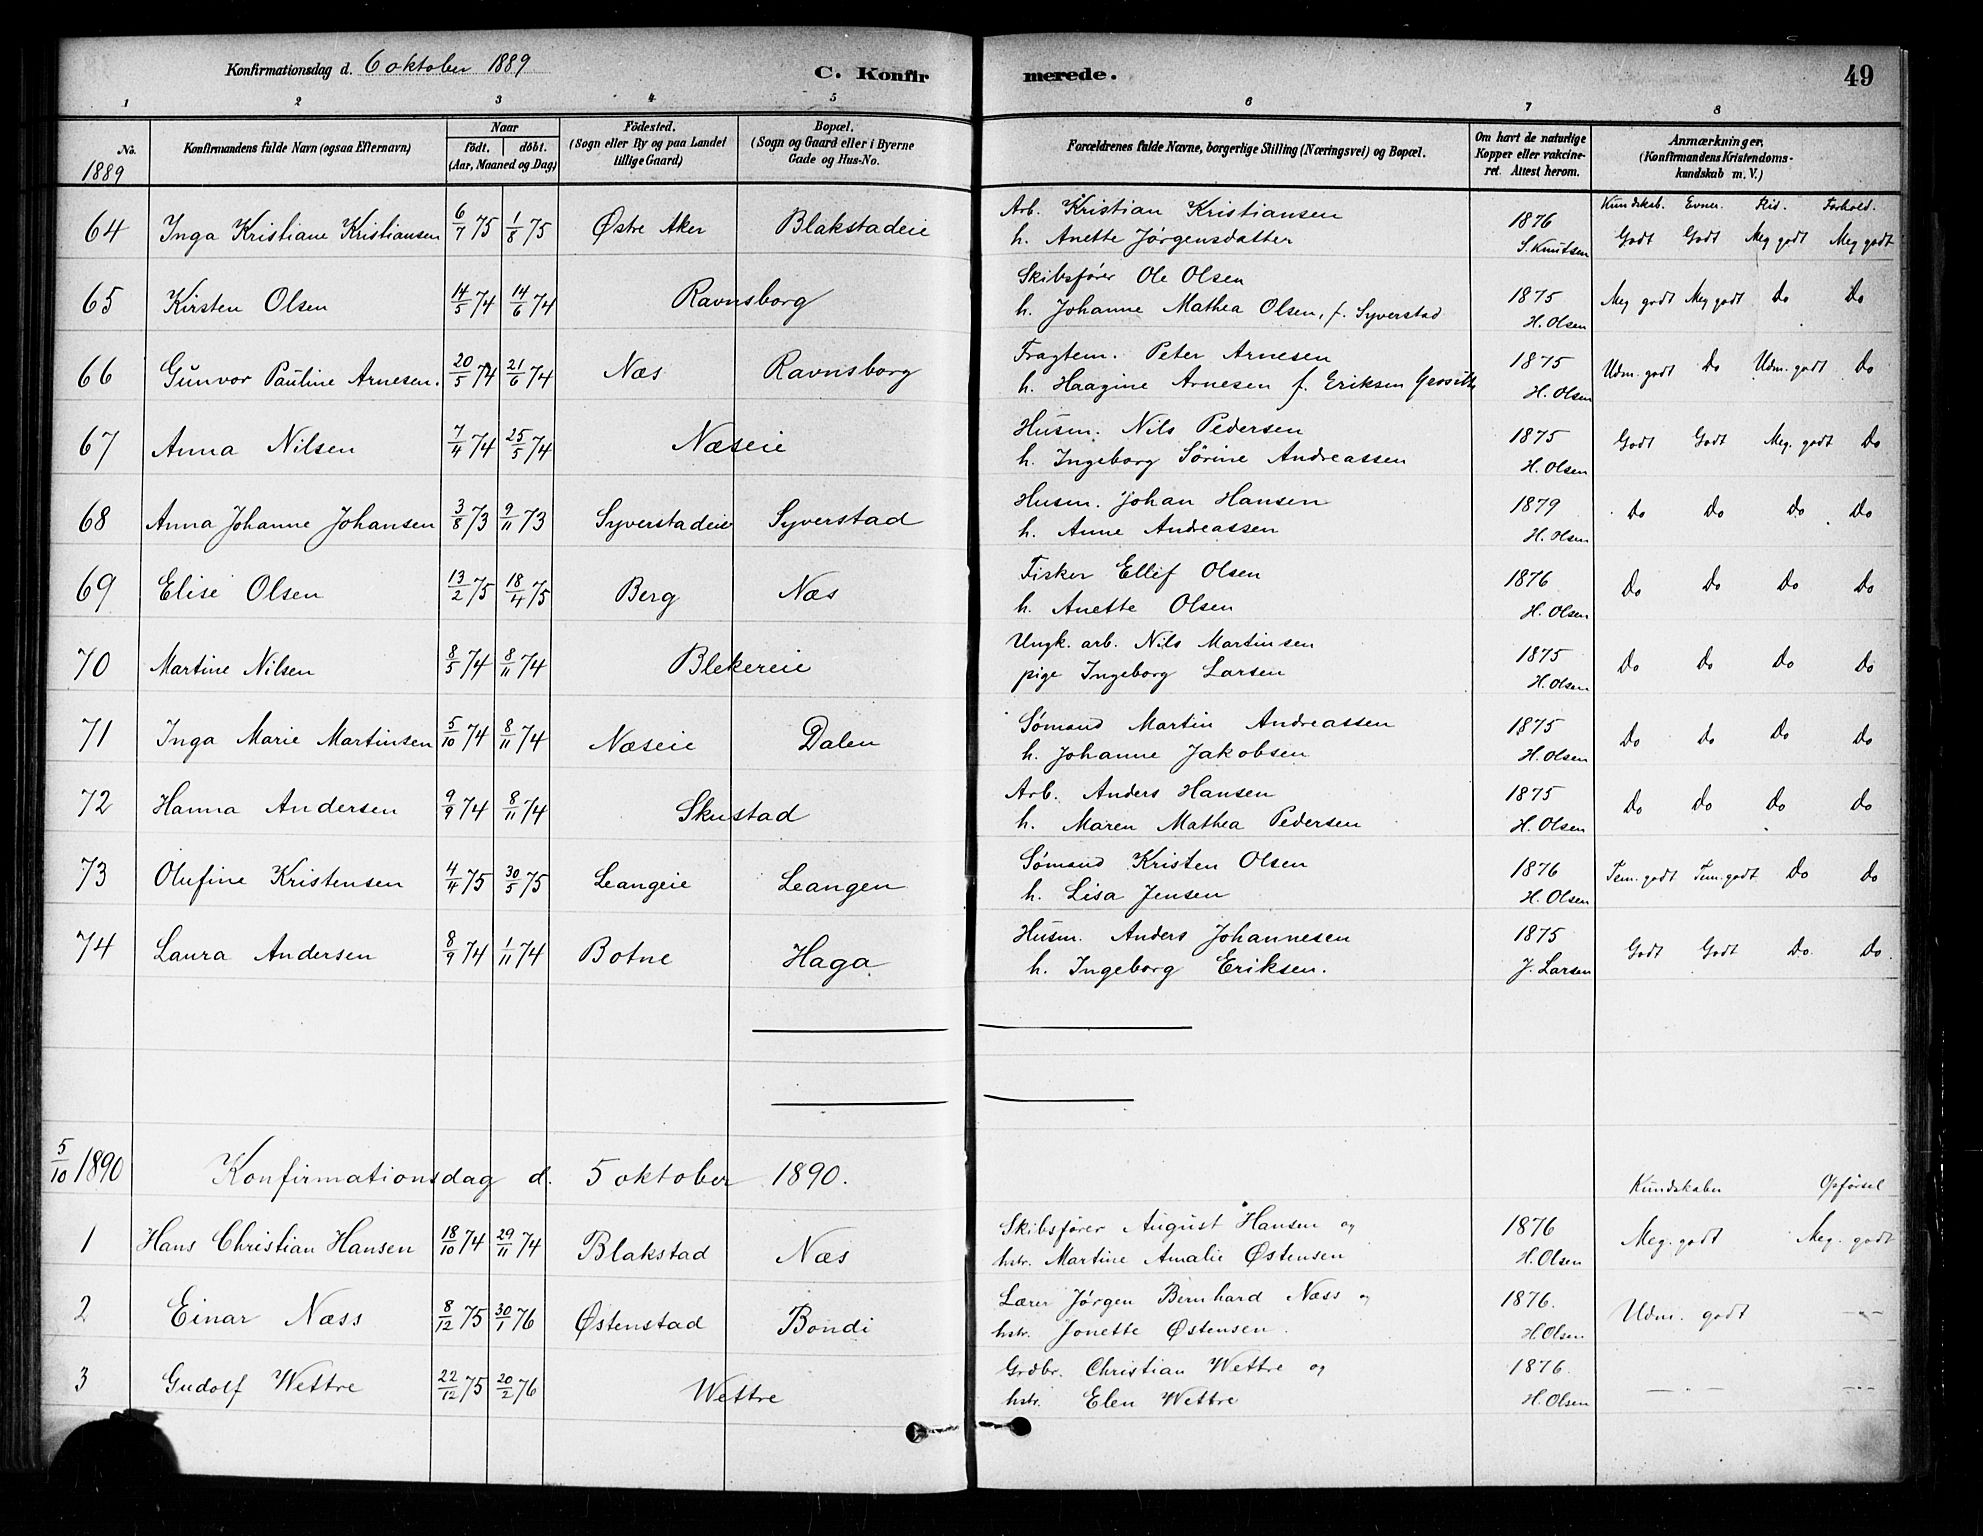 Konfirmationsdag d. 6 oktober 1889 C. Konfirmerede. 49
1 2 3 4 5 6 7 8
No. Konfirmandens fulde Navn (ogsaa Efternavn) Naar födt. döbt. (Aar, Maaned og Dag) Födested. (Sogn eller By og paa Landet tillige Gaard) Bopæl. (Sogn og Gaard eller i Byerne Gade og Hus-No. Forældrenes fulde Navne, borgerlige Stilling (Næringsvei) og Bopæl. Om havt de naturlige Kopper eller vakcineret. Attest herom. Anmærkninger. (Konfirmandens Kristendomskundskab m. V.)
1889
Kundskab. Evner. Flid. Forhold.
64 Inga Kristiane Kristiansen 6/7 75 1/8 75 Østre Aker Blakstadeie Arb. Kristian Kristiansen 1876 Godt Godt Meg godt Meg godt
h. Anette Jørgensdatter S. Knutsen
65 Kirsten Olsen 14/5 74 14/6 74 Ravnsborg Skibsfører Ole Olsen 1875 Meg godt Meg godt Do Do
h. Johanne Mathea Olsen, f. Syverstad H. Olsen
66 Gunvor Pauline Arnesen. 20/5 74 21/6 74 Næs Ravnsborg Fragtem. Peter Arnesen 1875 Udm. godt Do Udm. godt Do
h. Haagine Arnesen f. Eriksen H. Olsen
67 Anna Nilsen 7/4 74 25/5 74 Næseie Husm. Nils Pedersen 1875 Godt Godt Meg. godt Do
h. Ingeborg Sørine Andreassen H. Olsen
68 Anna Johanne Johansen 3/8 73 9/11 73 Syverstadeie Syverstad Husm. Johan Hansen 1879 Do Do Do Do
h. Anne Andreassen H. Olsen
69 Elise Olsen 13/2 75 18/4 75 Berg Næs Fisker Ellef Olsen 1876 Do Do Do Do
h. Anette Olsen H. Olsen
70 Martine Nilsen 8/5 74 8/11 74 Blekereie Ungk. arb. Nils Martinsen 1875 Do Do Do Do
pige Ingeborg Larsen H. Olsen
71 Inga Marie Martinsen 5/10 74 8/11 74 Næseie Dalen Sømand Martin Andreassen 1875 Do Do Do Do
h. Johanne Jakobsen H. Olsen
72 Hanna Andersen 9/9 74 8/11 74 Skustad Arb. Anders Hansen 1875 Do Do Do Do
h. Maren Mathea Pedersen H. Olsen
73 Olufine Kristensen 4/4 75 30/5 75 Leangeie Leangen Sømand Kristen Olsen 1876 Tem. godt Tem. godt Do Do
h. Lisa Jensen H. Olsen
74 Laura Andersen 8/9 74 1/11 74 Botne Haga Husm. Anders Johannesen 1875 Godt Godt Do. Do.
h. Ingeborg Eriksen. J. Larsen
5/10 1890 Konfirmationsdag d. 5 oktober 1890. Kundskaber Opførsel
1 Hans Christian Hansen 18/10 74 29/11 74 Blakstad Næs Skibsfører August Hansen og 1876 Meg. godt Meg. godt
hstr. Martine Amalie Østensen H. Olsen
2 Einar Næss 8/12 75 30/1 76 Østenstad Bondi Lærer Jørgen Bernhard Næss og 1876. Udm. godt -"-
hstr. Jonette Østensen. H. Olsen
3 Gudolf Wettre 22/12 75 20/2 76 Wettre Grdbr. Christian Wettre og 1876. -"- -"-
hstr. Elen Wettre H. Olsen